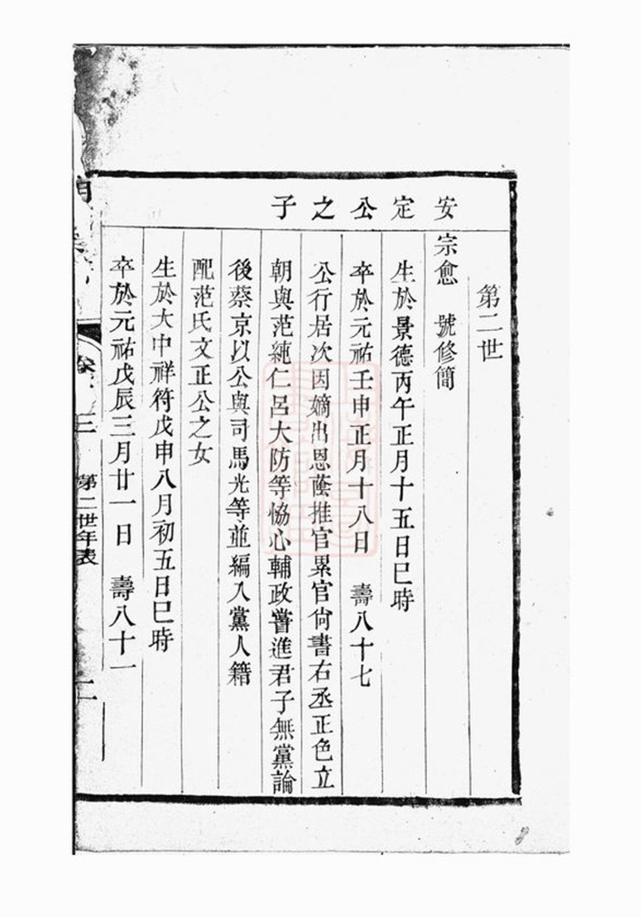 第二世
安定公之子
宗愈　號修簡
生於景德丙午正月十五日巳時
卒於元祐壬申正月十八日　壽八十七
公行居次因嫡出恩蔭推官累官尙書右丞正色立
朝與范純仁呂大防等恊心輔政嘗進君子無黨論
後蔡京以公與司馬光等並編入黨人籍
配范氏文正公之女
生於大中祥符戊申八月初五日巳時
卒於元祐戊辰三月廿一日　壽八十一
第二世年表
二